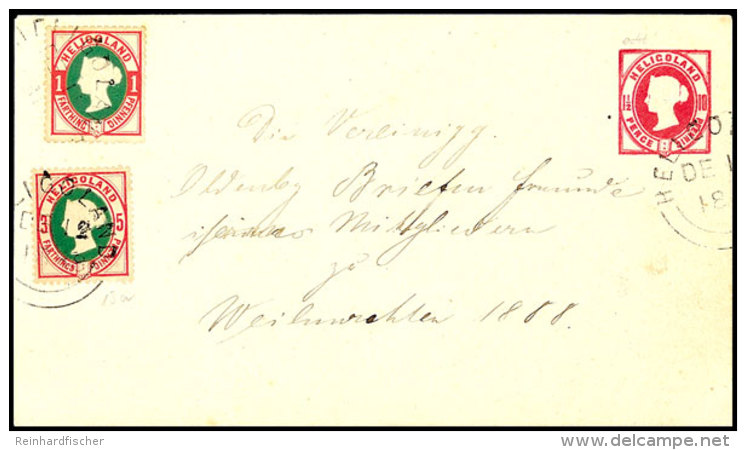 HELIGOLAND
1 1
FARTHING PFENNIG
HELIGOLAND
3 5
FARTHINGS PFENNIG
HELIGOLAND
1 1/2 10
PENCE PFENNIG
HEL
DE
18
Die Vereinigg
Oldenbg Briefm freunde
Mitgliedern
zu
Weihnachten 1888.
Reinhardfischer
delcampe.net